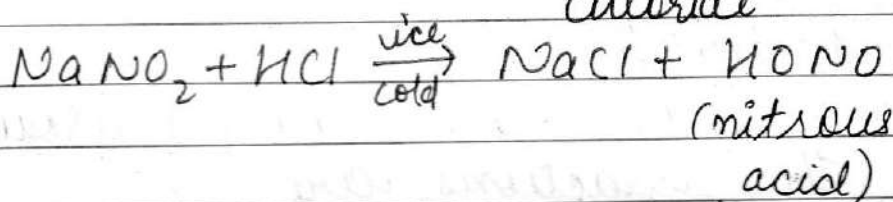 chloride
NaNO₂ + HCl ice cold → NaCl + HONO
(nitrous
acid)